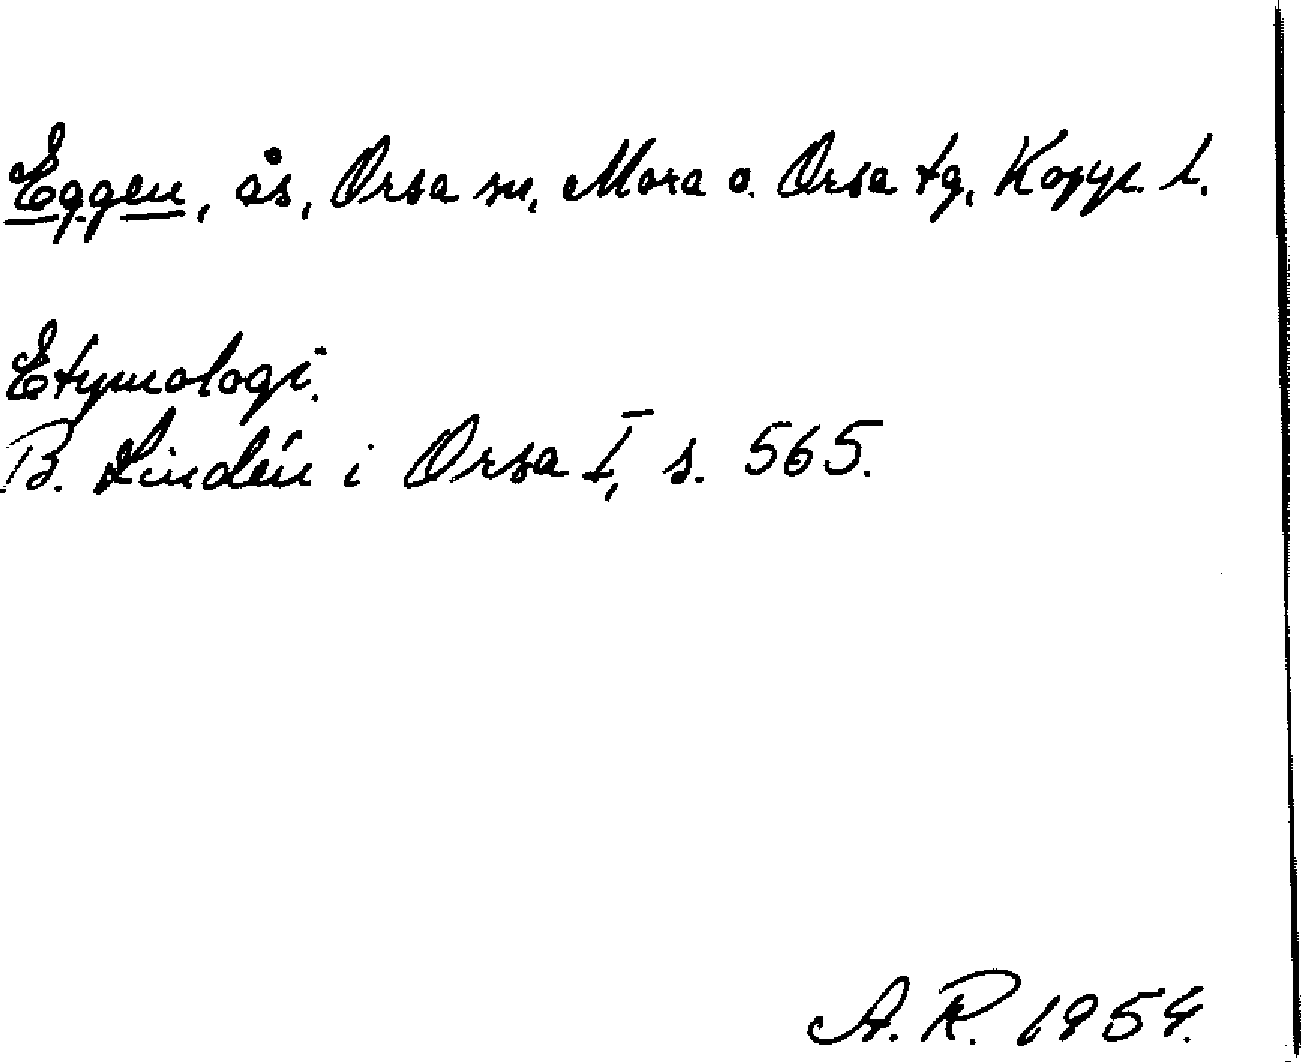 Eggen, ås, Orsa sn, Mora o. Orsa tg, Kopp. l.
Etymologi.
B. Lindén i Orsa I, s. 565.
A. R. 1954.